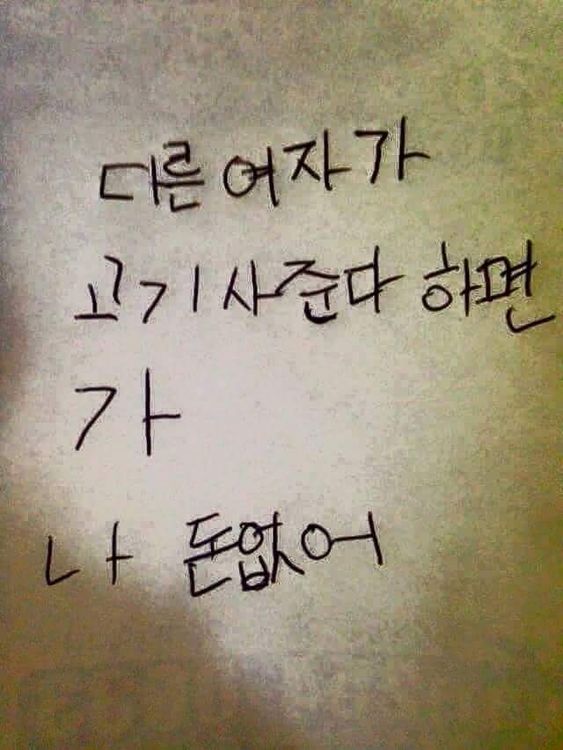 다른 여자가
고기 사준다 하면
가
나 돈없어